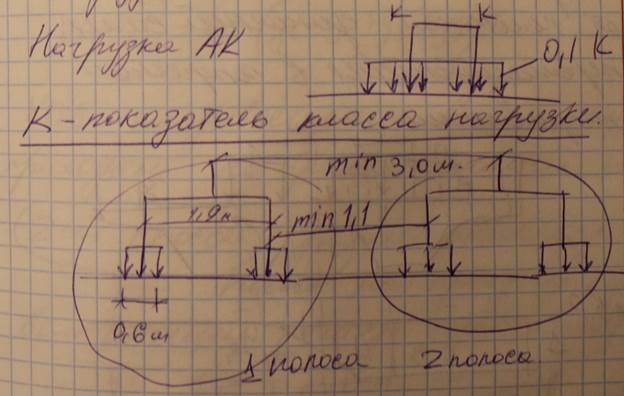 К К
Нагрузка АК
0,1 К
К - показатель класса нагрузки.
min 3,0 м.
1,9 м
min 1,1
0,6 м
1 полоса
2 полоса